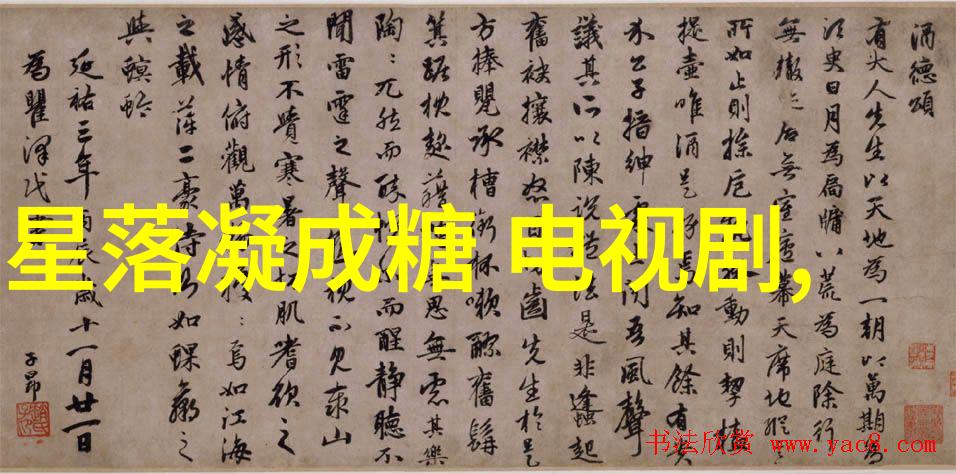 酒德頌
有大人先生以天地為一朝以萬期為
須臾日月為扃牖八荒為庭除行
無轍迹居無室廬幕天席地縱意
所如止則操卮執觚動則挈榼
提壺唯酒是務焉知其餘有貴
介公子搢紳處士聞吾風聲
議其所以陳說禮法是非蠭起
奮袂攘襟怒目切齒先生於是
方捧甖承槽銜杯漱醪奮髯
箕踞枕麴藉糟無思無慮其樂
陶:兀然而醉恍尔而醒靜聽不
聞雷霆之聲熟視不見泰山
之形不覺寒暑之切肌嗜欲之
感情俯觀萬物擾:焉如江海
之載萍二豪侍側如蜾蠃之
與螟蛉
延祐三年丙辰歲十一月廿一日
為瞿澤民書
子昂
星落凝成糖 电视剧,
书法欣赏 www.yac8.com